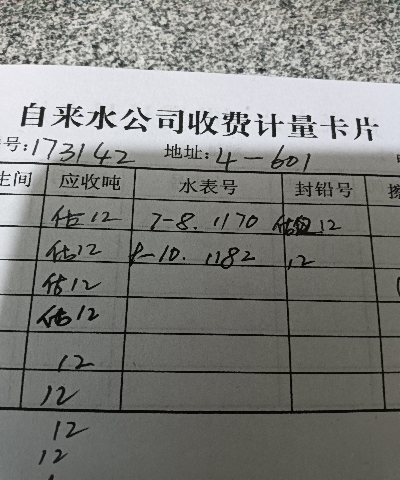 自来水公司收费计量卡片
号:173142 地址:4-601
生间 应收吨 水表号 封铅号
估12 7-8. 1170 估 12
估12 8-10. 1182 12
估12
估12
12
12
12
12